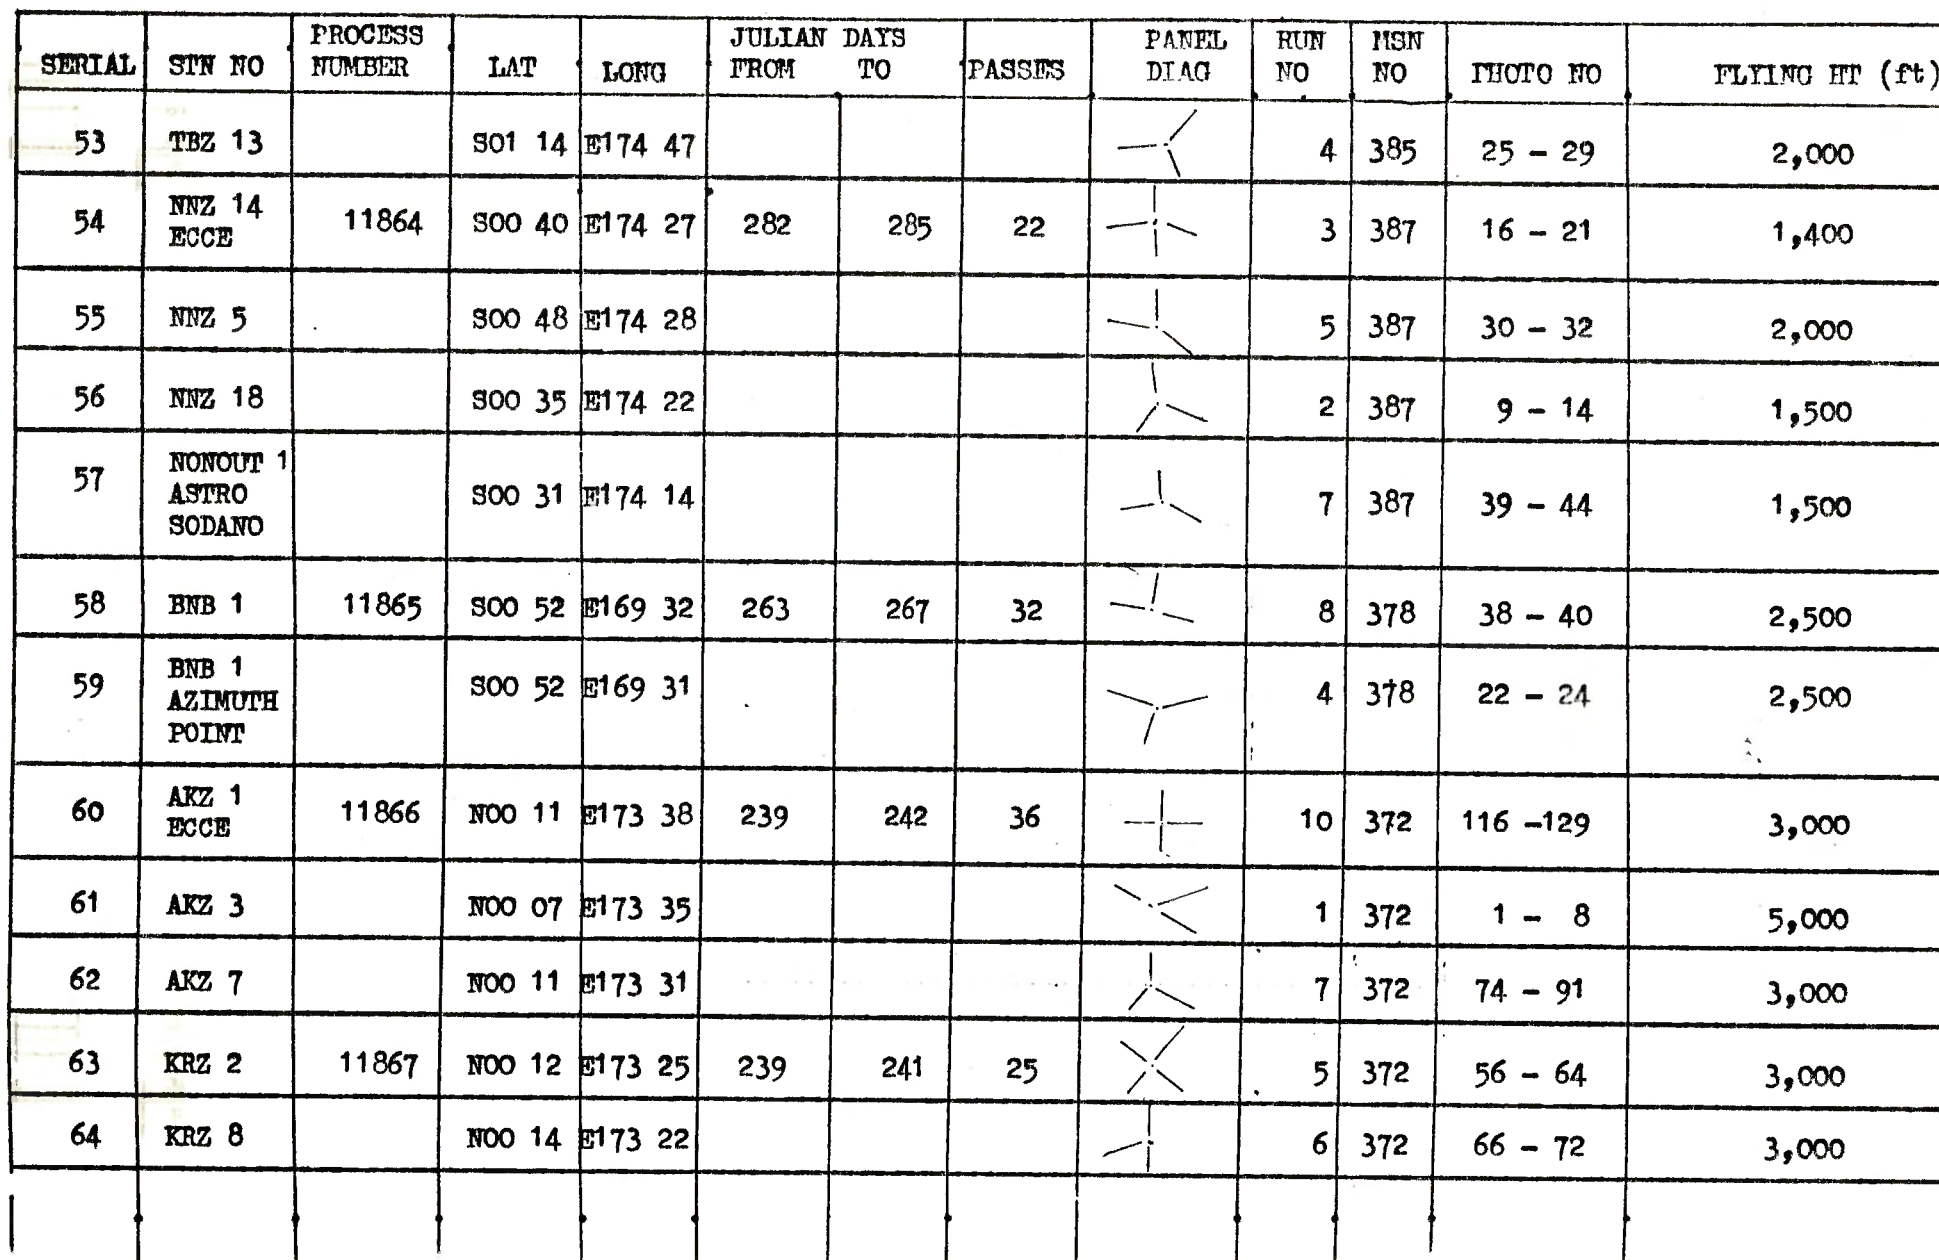 SERIAL STN NO PROCESS NUMBER LAT LONG JULIAN DAYS FROM TO PASSES PANEL DIAG RUN NO MSN NO PHOTO NO FLYING HT (ft)
53 TBZ 13 S01 14 E174 47 4 385 25 - 29 2,000
54 NNZ 14 ECCE 11864 S00 40 E174 27 282 285 22 3 387 16 - 21 1,400
55 NNZ 5 S00 48 E174 28 5 387 30 - 32 2,000
56 NNZ 18 S00 35 E174 22 2 387 9 - 14 1,500
57 NONOUT 1 ASTRO SODANO S00 31 E174 14 7 387 39 - 44 1,500
58 BNB 1 11865 S00 52 E169 32 263 267 32 8 378 38 - 40 2,500
59 BNB 1 AZIMUTH POINT S00 52 E169 31 4 378 22 - 24 2,500
60 AKZ 1 ECCE 11866 N00 11 E173 38 239 242 36 10 372 116 -129 3,000
61 AKZ 3 N00 07 E173 35 1 372 1 - 8 5,000
62 AKZ 7 N00 11 E173 31 7 372 74 - 91 3,000
63 KRZ 2 11867 N00 12 E173 25 239 241 25 5 372 56 - 64 3,000
64 KRZ 8 N00 14 E173 22 6 372 66 - 72 3,000